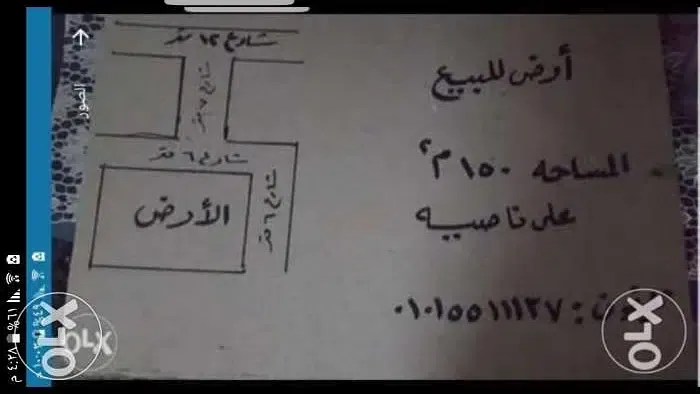 أرض للبيع
المساحه ١٥٠ م٢
على ناصيه
٠١٠١٥٥١١١٢٧
شارع ١٢ متر
شارع ٦ متر
شارع ٦ متر
الأرض
الصور
٤:٢٨ م
٦١%
OLX
OLX
OLX